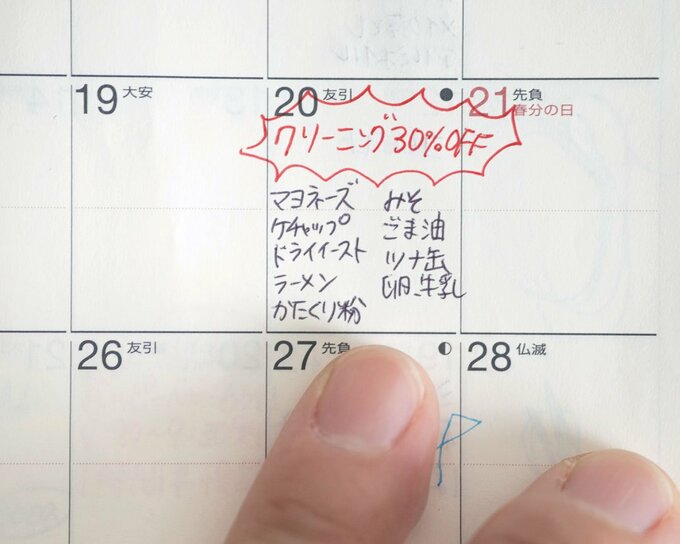 19 大安
20 友引
21 先負
春分の日
クリーニング30%OFF
マヨネーズ みそ
ケチャップ ごま油
ドライイースト ツナ缶
ラーメン 卵、牛乳
かたくり粉
26 友引
27 先負
28 仏滅
P